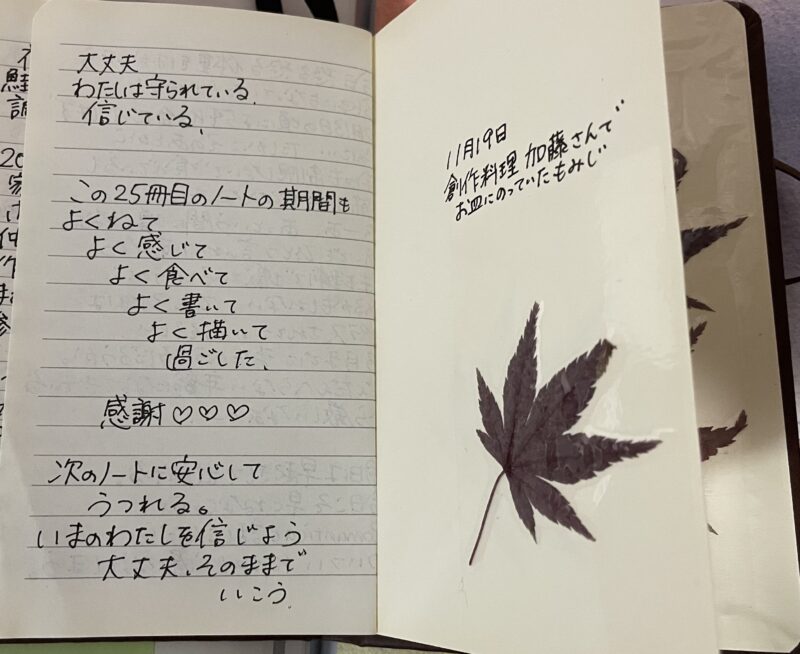 大丈夫
わたしは守られている。
信じている。
この25冊目のノートの期間も
よくねて
よく感じて
よく食べて
よく書いて
よく描いて
過ごした。
感謝♡♡♡
次のノートに安心して
うつれる。
いまのわたしを信じよう
大丈夫、そのままで
いこう。
11月19日
創作料理 加藤さんで
お皿にのっていたもみじ